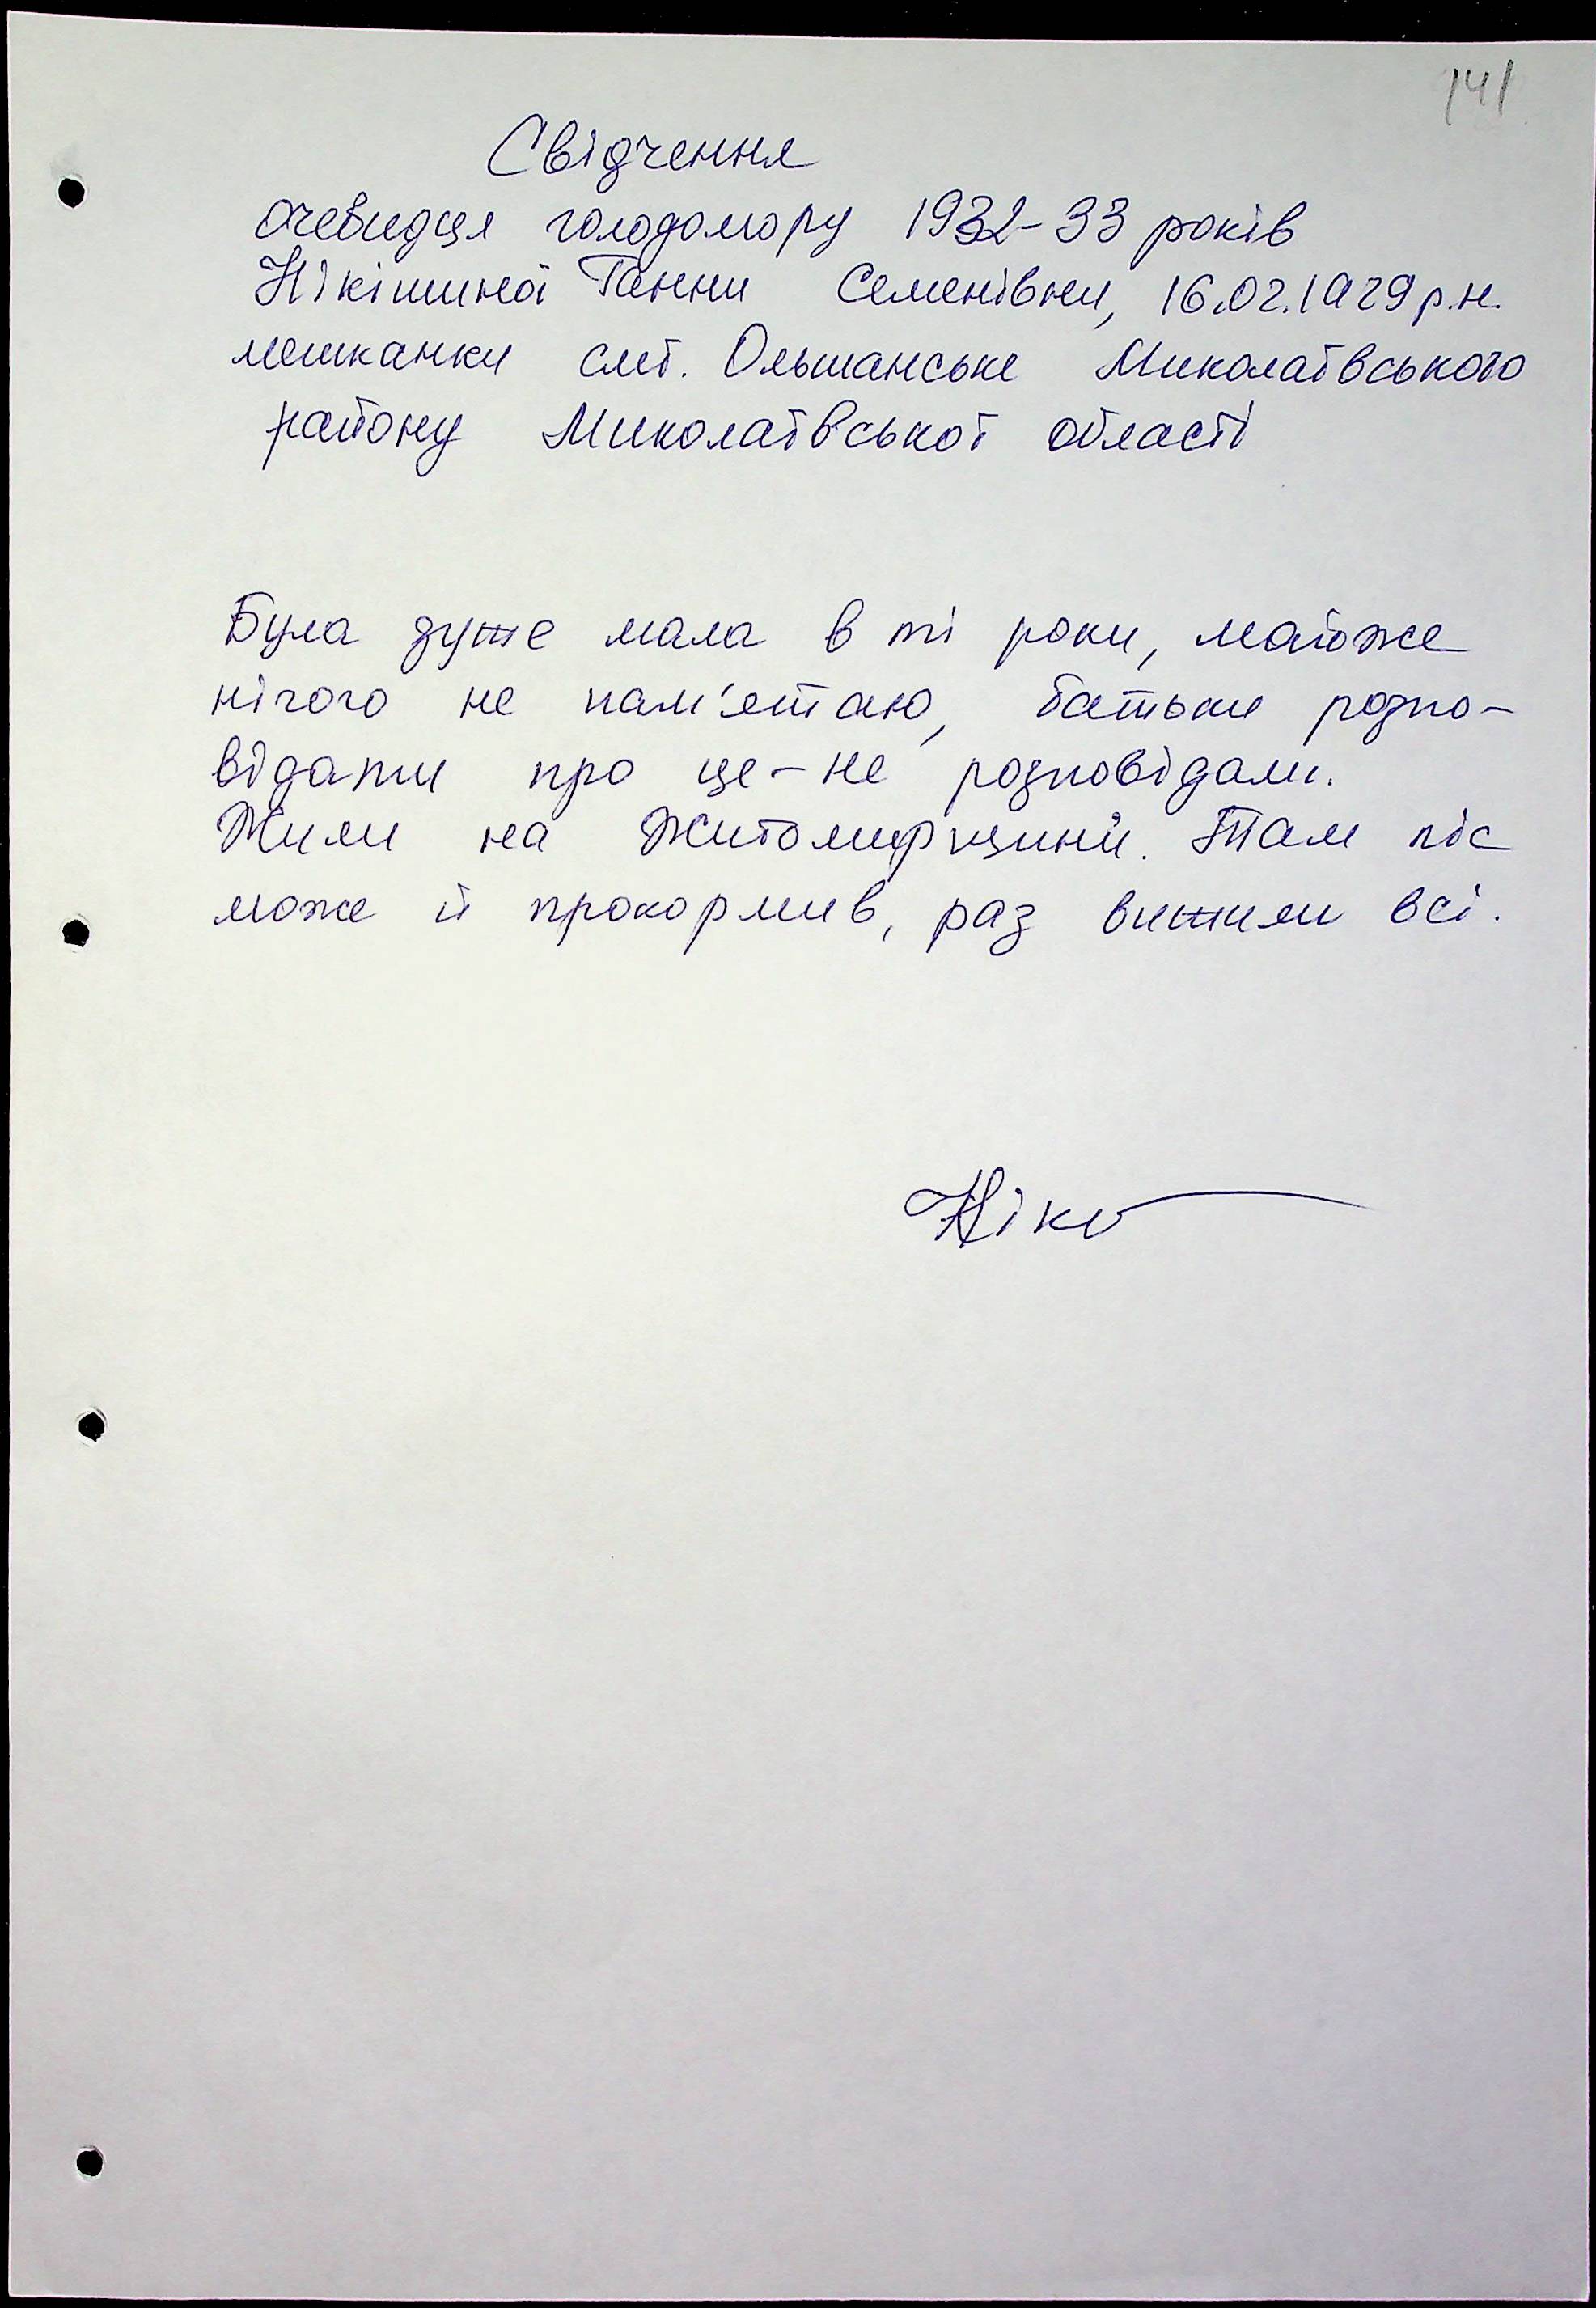 141
Свідчення
очевидця голодомору 1932-33 років
Нікішиної Ганни Семенівни, 16.02.1929 р.н.
мешканки смт. Ольшанське Миколаївського
району Миколаївської області
Була дуже мала в ті роки, майже
нічого не пам'ятаю, батьки розпо-
відати про це - не розповідали.
Жили на Житомирщині. Там ліс
може й прокормив, раз вижили всі.
Нік